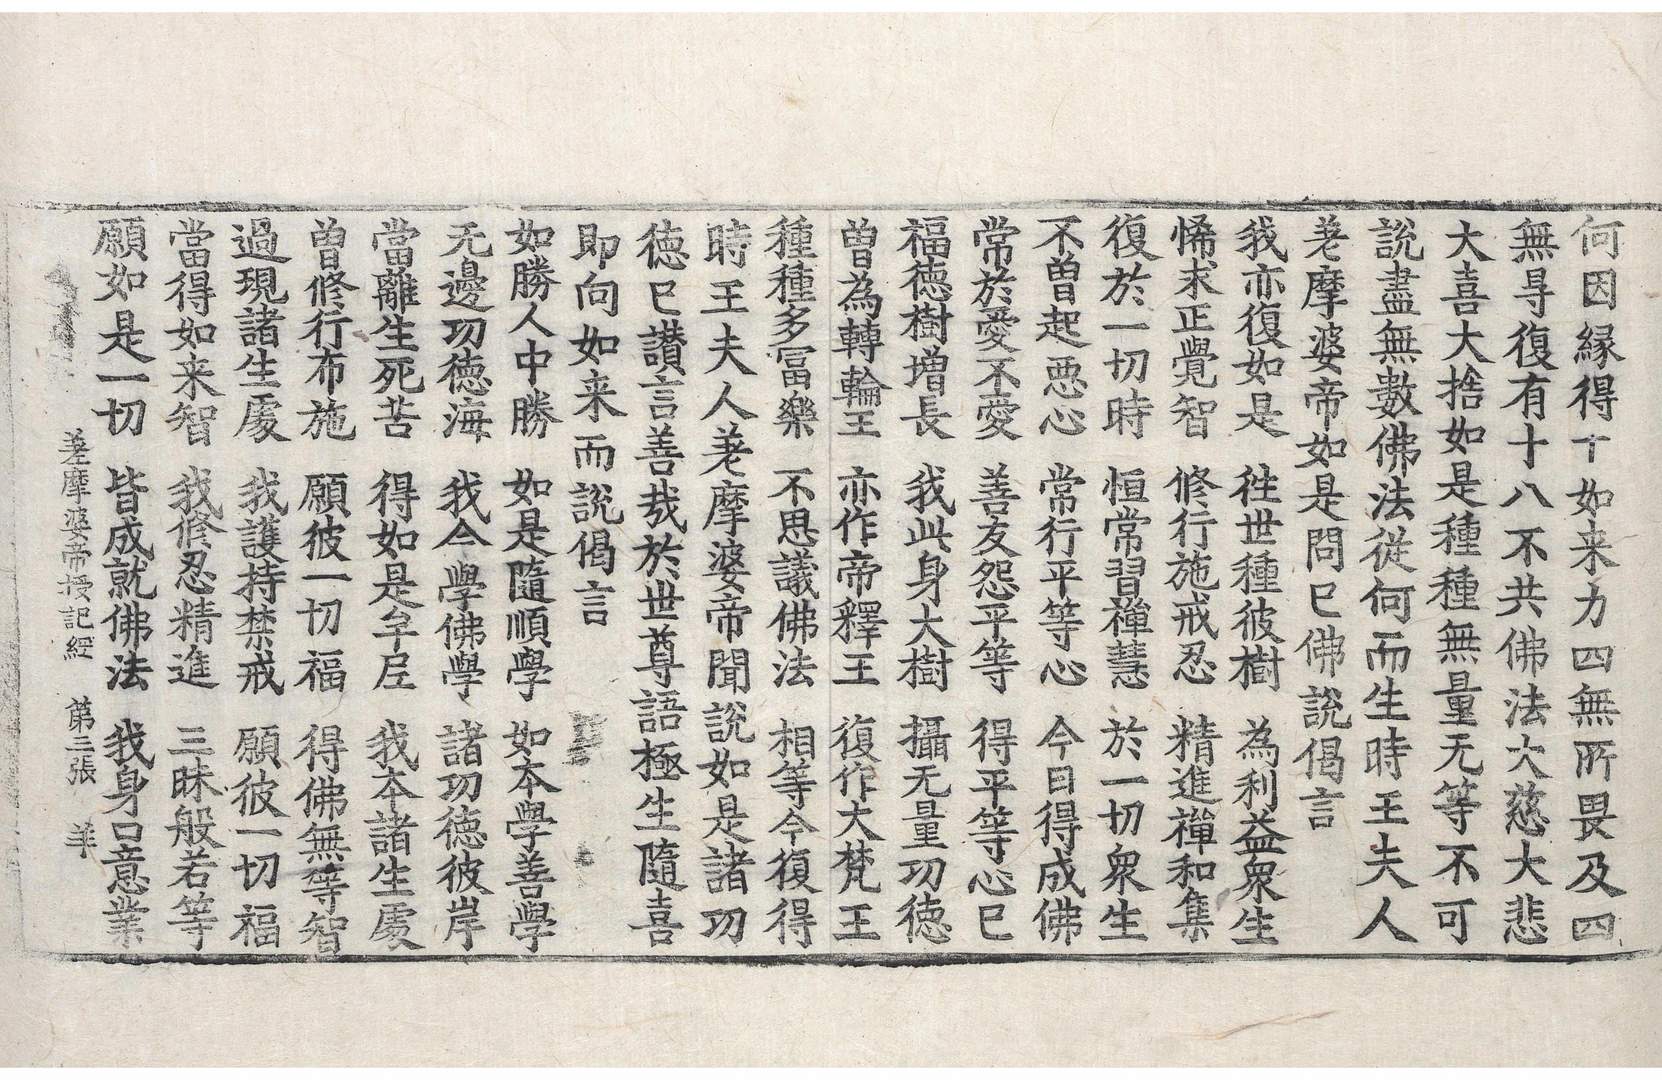 何因縁得十如来力四無所畏及四
無㝵復有十八不共佛法大慈大悲
大喜大捨如是種種無量无等不可
說盡無數佛法從何而生時王夫人
差摩婆帝如是問已佛說偈言
我亦復如是 往世種彼樹 為利益衆生
悕求正覺智 修行施戒忍 精進禪和集
復於一切時 恒常習禪慧 於一切衆生
不曽起惡心 常行平等心 今日得成佛
常於愛不愛 善友怨平等 得平等心已
福德樹增長 我此身大樹 攝无量功德
曽為轉輪王 亦作帝釋王 復作大梵王
種種多冨樂 不思議佛法 相等今復得
時王夫人差摩婆帝聞說如是諸功
德已讃言善㢤於世尊語極生隨喜
即向如来而說偈言
如勝人中勝 如是隨順學 如本學善學
无邊功德海 我今學佛學 諸功德彼岸
當離生死苦 得如是牟尼 我本諸生處
曽修行布施 願彼一切福 得佛無等智
過現諸生處 我護持禁戒 願彼一切福
當得如来智 我修忍精進 三昧般若等
願如是一切 皆成就佛法 我身口意業
差摩婆帝授記經 第三張 羊